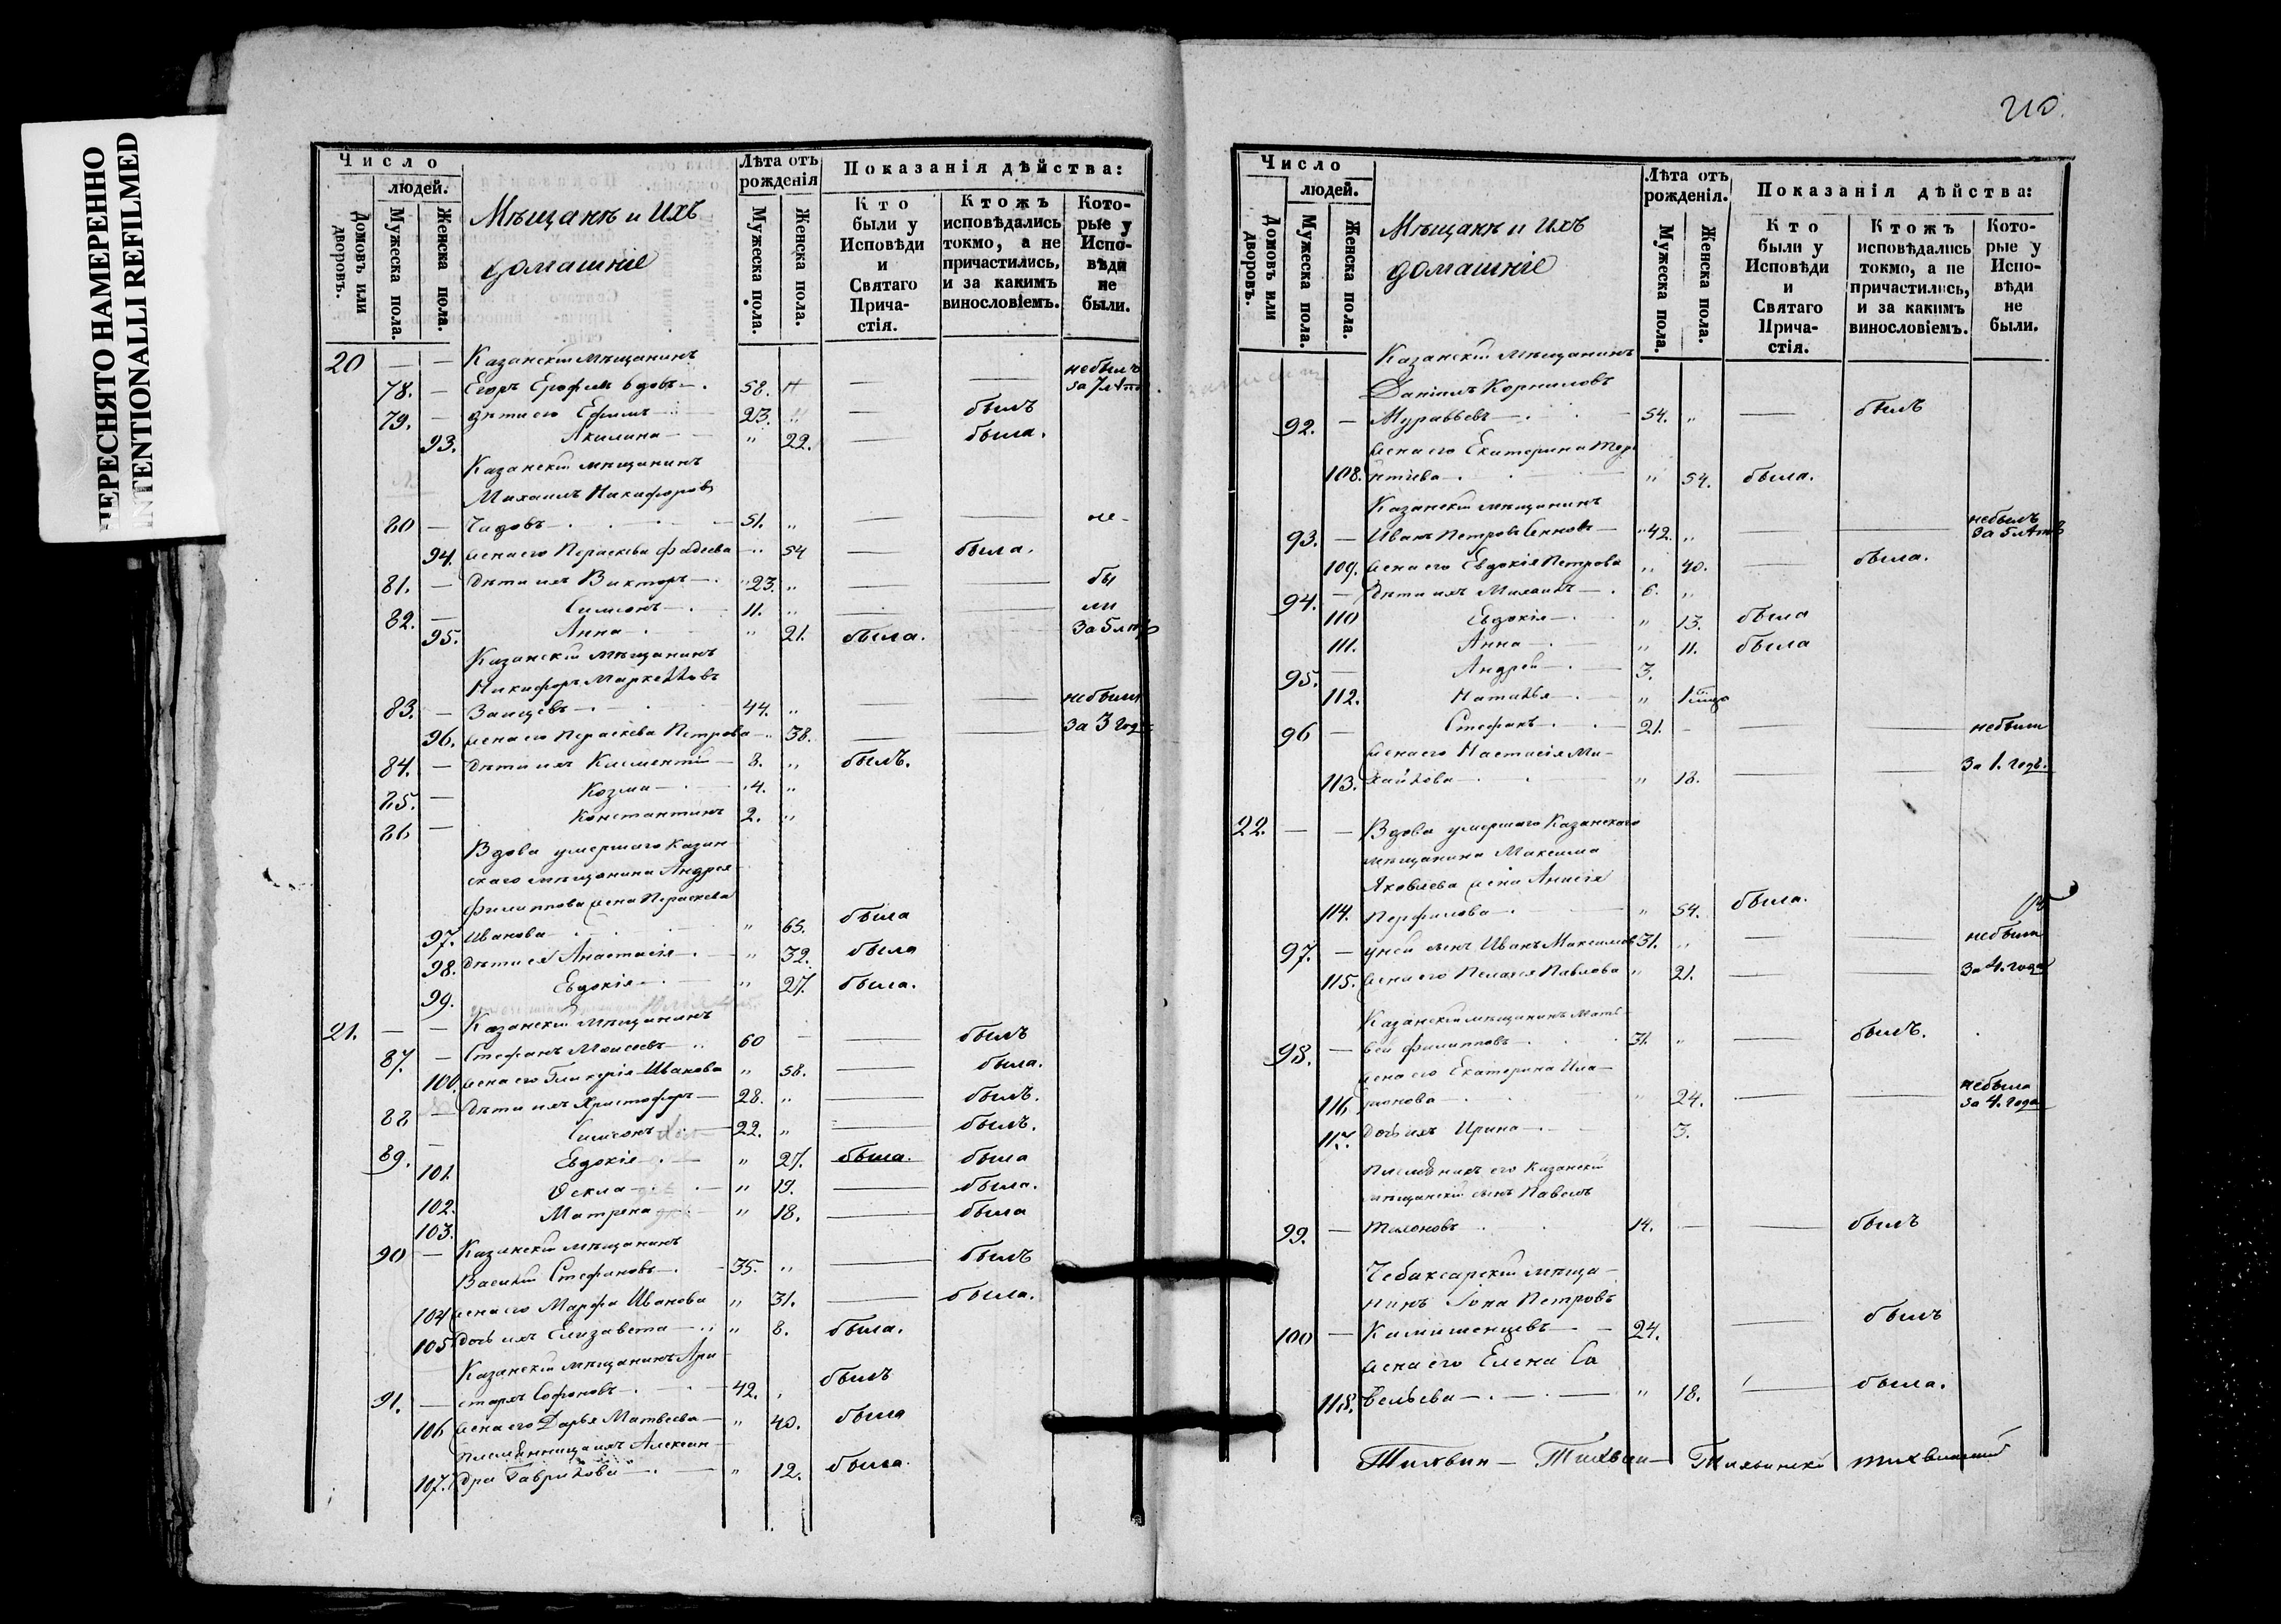 ПЕРЕСНЯТО НАМЕРЕННО
INTENTIONALLI REFILMED
Число
людей.
Домовъ или дворовъ.
Мужеска пола.
Женска пола.
Мѣщанъ и Ихъ
домашніе
Лѣта отъ рожденія
Мужеска пола.
Женска пола.
Показанія дѣйства:
Кто были у Исповѣди и Святаго Причастія.
Ктожъ исповѣдались токмо, а не причастились, и за какимъ винословіемъ.
Которые у Исповѣди не были.
20 — — Казанскій мѣщанинъ небылъ
78. — Егоръ Ерофѣевъ вдовъ — 58. — — за 7 лѣтъ
79. — дѣти его Ефимъ — 23. " — былъ
93. Акилина — " 22. — была.
Казанскій мѣщанинъ
Михаилъ Никифоровъ
80 — Чадовъ — 51. " — — не-
94. жена его Параскева Фадѣева — " 54 — была.
81. — дѣти ихъ Викторъ — 23. " — — бы
82. — Симеонъ — 11. " — — ли
95. Анна — " 21. была. за 5 лѣтъ
Казанскій мѣщанинъ
Никифоръ Маркелловъ
83. — Зайцевъ — 44. " — — небыли
96. жена его Параскева Петрова — " 38. — — за 3 года
84. — дѣти ихъ Климентій — 8. " былъ.
85. — Козма — 4. "
86 — Константинъ 2. "
Вдова умершаго Казан-
скаго мѣщанина Андрея
Филиппова жена Параскева
97. Иванова — " 65. была
98. дѣти ея Анастасія — " 32. была
99. Евдокія — " 27. была.
21. — — Казанскій мѣщанинъ
87. — Стефанъ Моисеевъ — 60 — — былъ
100. жена его Гликерія Иванова " 58. — была.
88 — дѣти ихъ Христофоръ — 28. " — былъ.
89. — Симеонъ — 22. " — былъ.
101. Евдокія — " 27. была. была
102. Ѳекла — " 19. — была.
103. Матрена " 18. — была
90 — Казанскій мѣщанинъ
Василій Стефановъ — 35. " — былъ
104 жена его Марфа Иванова " 31. — была.
105 дочь ихъ Елизавета — " 8. была.
Казанскій мѣщанинъ Ари-
91. — стархъ Софоновъ — 42. былъ
106 жена его Дарья Матвеева — " 40. была
племянница ихъ Алексан-
107. дра Гаврилова — " 12. была.
210.
Число
людей.
Домовъ или дворовъ.
Мужеска пола.
Женска пола.
Мѣщанъ и Ихъ
домашніе
Лѣта отъ рожденія.
Мужеска пола.
Женска пола.
Показанія дѣйства:
Кто были у Исповѣди и Святаго Причастія.
Ктожъ исповѣдались токмо, а не причастились, и за какимъ винословіемъ.
Которые у Исповѣди не были.
Казанскій мѣщанинъ
Даніилъ Корниловъ
92. — Муравьевъ — 54. " — былъ
жена его Екатерина Тере-
108. нтіева — " 54. была.
Казанскій мѣщанинъ
93. — Иванъ Петровъ — 42. " — — небылъ за 5 лѣтъ
109. жена его Евдокія Петрова " 40. — была.
94. — дѣти ихъ Михаилъ — 6. "
110 Евдокія — " 13. была
111. Анна — " 11. была
95. — Андрей — 3.
112. Наталья — " 1
96 — Стефанъ — 21. — — — небыли
жена его Настасія Ми-
113. хайлова — " 18. — — за 1. годъ.
22. — — Вдова умершаго Казанскаго
мѣщанина Максима
Яковлева жена Анисія
114. Перфилова — " 54. была.
97. — у ней сынъ Иванъ Максимовъ 31. " — — небыли
115. жена его Пелагея Павлова " 21. — — за 4. года
Казанскій мѣщанинъ Матѳ-
98. — вей Филипповъ 31. " — былъ.
жена его Екатерина Ила-
116 ріонова — " 24. — — небыла за 4. года
117. дочь ихъ Ирина — 3.
племянникъ его Казанскій
мѣщанскій сынъ Павелъ
99. — Тихоновъ 14. — — былъ
Чебоксарскій мѣща-
нинъ Іона Петровъ
100 — Камышенцевъ — 24. — былъ
жена его Елена Са-
118. вельева — " 18. — была.
Тихвин — Тихвин — Тихвинскій тихвинскій